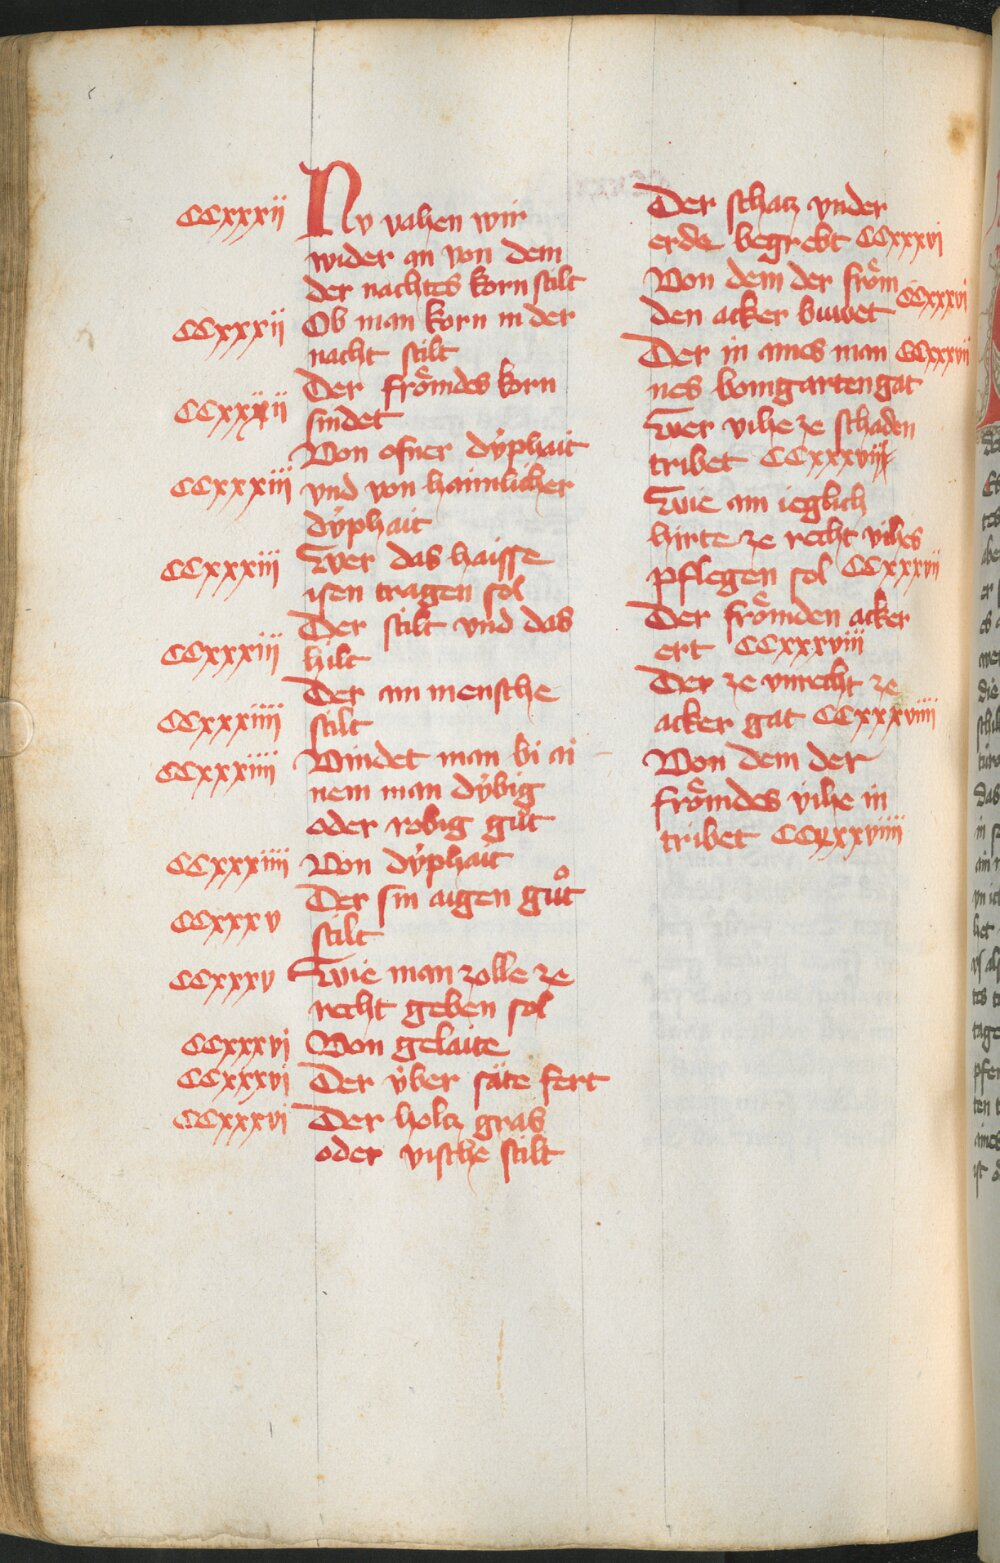 CCxxxii Nv vahen wir
wider an von dem
der nachtes korn stilt
CCxxxii Ob man korn in der
nacht stilt
Der froͤmdes korn
CCxxxii sindet
Von ofner dÿphait
CCxxxiii vnd von haimlicher
dÿphait
CCxxxiii Wer das haisse
isen tragen sol
Der stilt vnd das
CCxxxiii hilt
Der ain mensche
CCxxxiiii stilt
CCxxxiiii Vindet man bi ai
nem man dÿbig
oder robig guͦt
CCxxxiiii Von dÿphait
Der sin aigen guͦt
CCxxxv stilt
CCxxxv Wie man zolle ze
recht geben sol
CCxxxvi Von gelaite
CCxxxvi Der ÿber säte fert
CCxxxvi Der holtz gras
oder vische stilt
Der schatz vnder
erde begrebt CCxxxvi
Von dem der froͤm
den acker buwet CCxxxvi
Der in aines man CCxxxvii
nes bomgarten gat
Wer vihe ze schaden
tribet CCxxxvii
Wie ain ieglich
hirte ze recht vihes
pflegen sol CCxxxvii
Der froͤmden acker
ert CCxxxviii
Der ze vnrecht ze
acker gat CCxxxviiii
Von dem der
froͤmdes vihe in
tribet CCxxxviiii